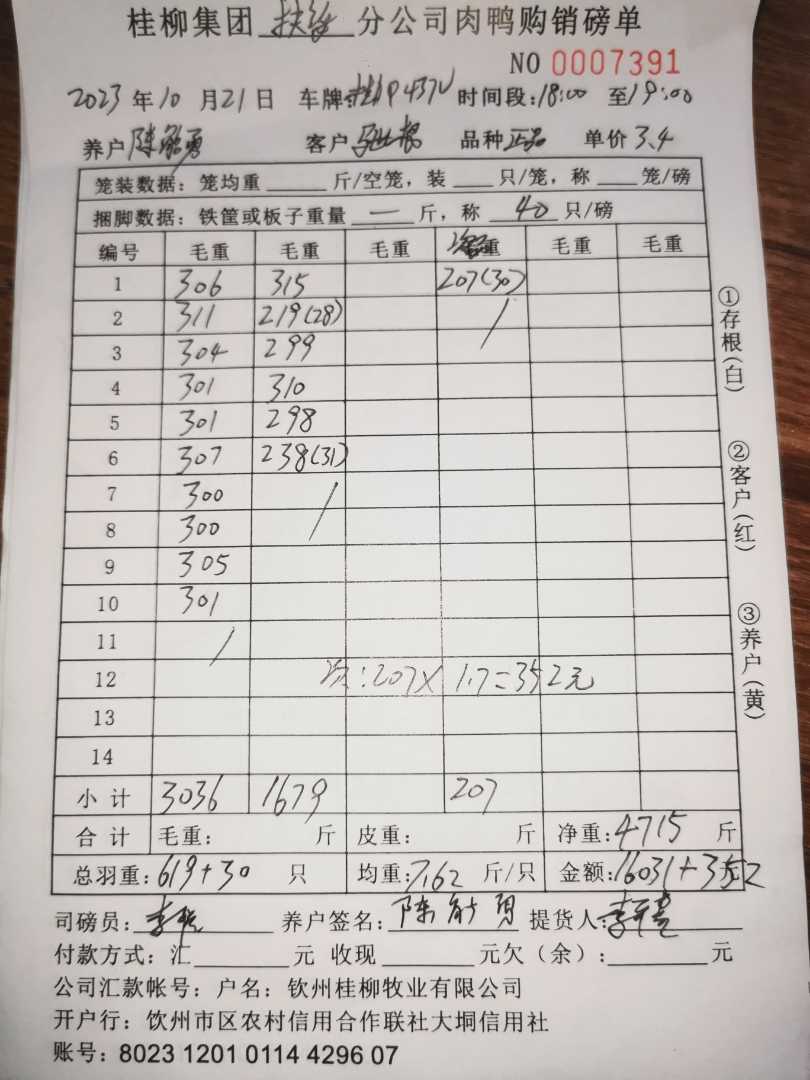 桂柳集团 扶绥 分公司肉鸭购销磅单
NO 0007391
2023 年 10 月 21 日 车牌: 时间段:18:00 至19:00
养户 陈能勇 客户 品种 正品 单价 3.4
笼装数据: 笼均重 斤/空笼, 装 只/笼, 称 笼/磅
捆脚数据: 铁筐或板子重量 一 斤, 称 40 只/磅
编号 毛重 毛重 毛重 次重 毛重 毛重
1 306 315 207(30)
2 311 219(28) /
3 304 299
4 301 310
5 301 298
6 307 238(31)
7 300 /
8 300
9 305
10 301
11 /
12 次:207×1.7=352元
13
14
小计 3036 1679 207
合计 毛重: 斤 皮重: 斤 净重:4715 斤
总羽重:619+30 只 均重:7.62 斤/只 金额:16031+352
司磅员: 养户签名: 陈能勇 提货人:
付款方式: 汇 元 收现 元欠(余): 元
公司汇款帐号: 户名: 钦州桂柳牧业有限公司
开户行: 饮州市区农村信用合作联社大垌信用社
账号: 8023 1201 0114 4296 07
①存根(白)
②客户(红)
③养户(黄)